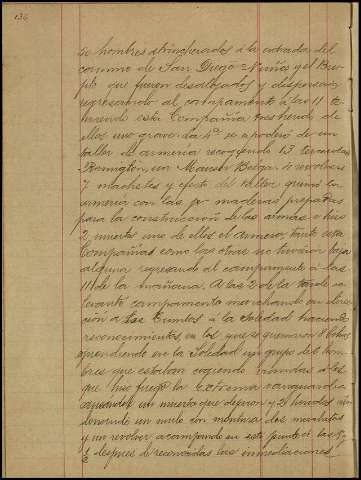 136
50 hombres atrincherados á la entrada del
camino de San Diego Nuñez y el Bru-
que fueron desalojados y dispersados
regresando al campamento á las 11 te-
niendo esta Compañia tres heridos de
ellos uno grave. La 4ª se apoderó de un
taller de armeria recogiendo 13 tercerolas
Remington, un Mauser Belga, 4 revolvers
7 machetes y efectos del taller quemó la
armeria con las maderas preparadas
para la construccion de las armas é hizo
2 muertos uno de ellos el armero, tanto esta
Compañias como las otras no tuvieron baja
alguna regresando al campamento á las
11 de la mañana. A las 2 de la tarde se
levantó campamento marchando en direc-
ción á Tumbas á la Soledad haciendo
reconocimientos, en los que se quemaron 8 bohios
sorprendiendo en la Soledad un grupo de hom-
bres que estaban cogiendo viandas á los
que hizo fuego la extrema vanguardia
un muerto que dejaron y 2 heridos aban-
donando un mulo con montura dos machetes
y un revolver acampando en este punto á las 5
despues de reconocidas las inmediaciones